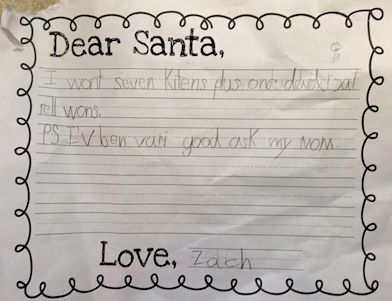 Dear Santa,
I wont seven Kitens plus one
rell wons.
PS IV ben vari good ask my Mom.
Love, Zach